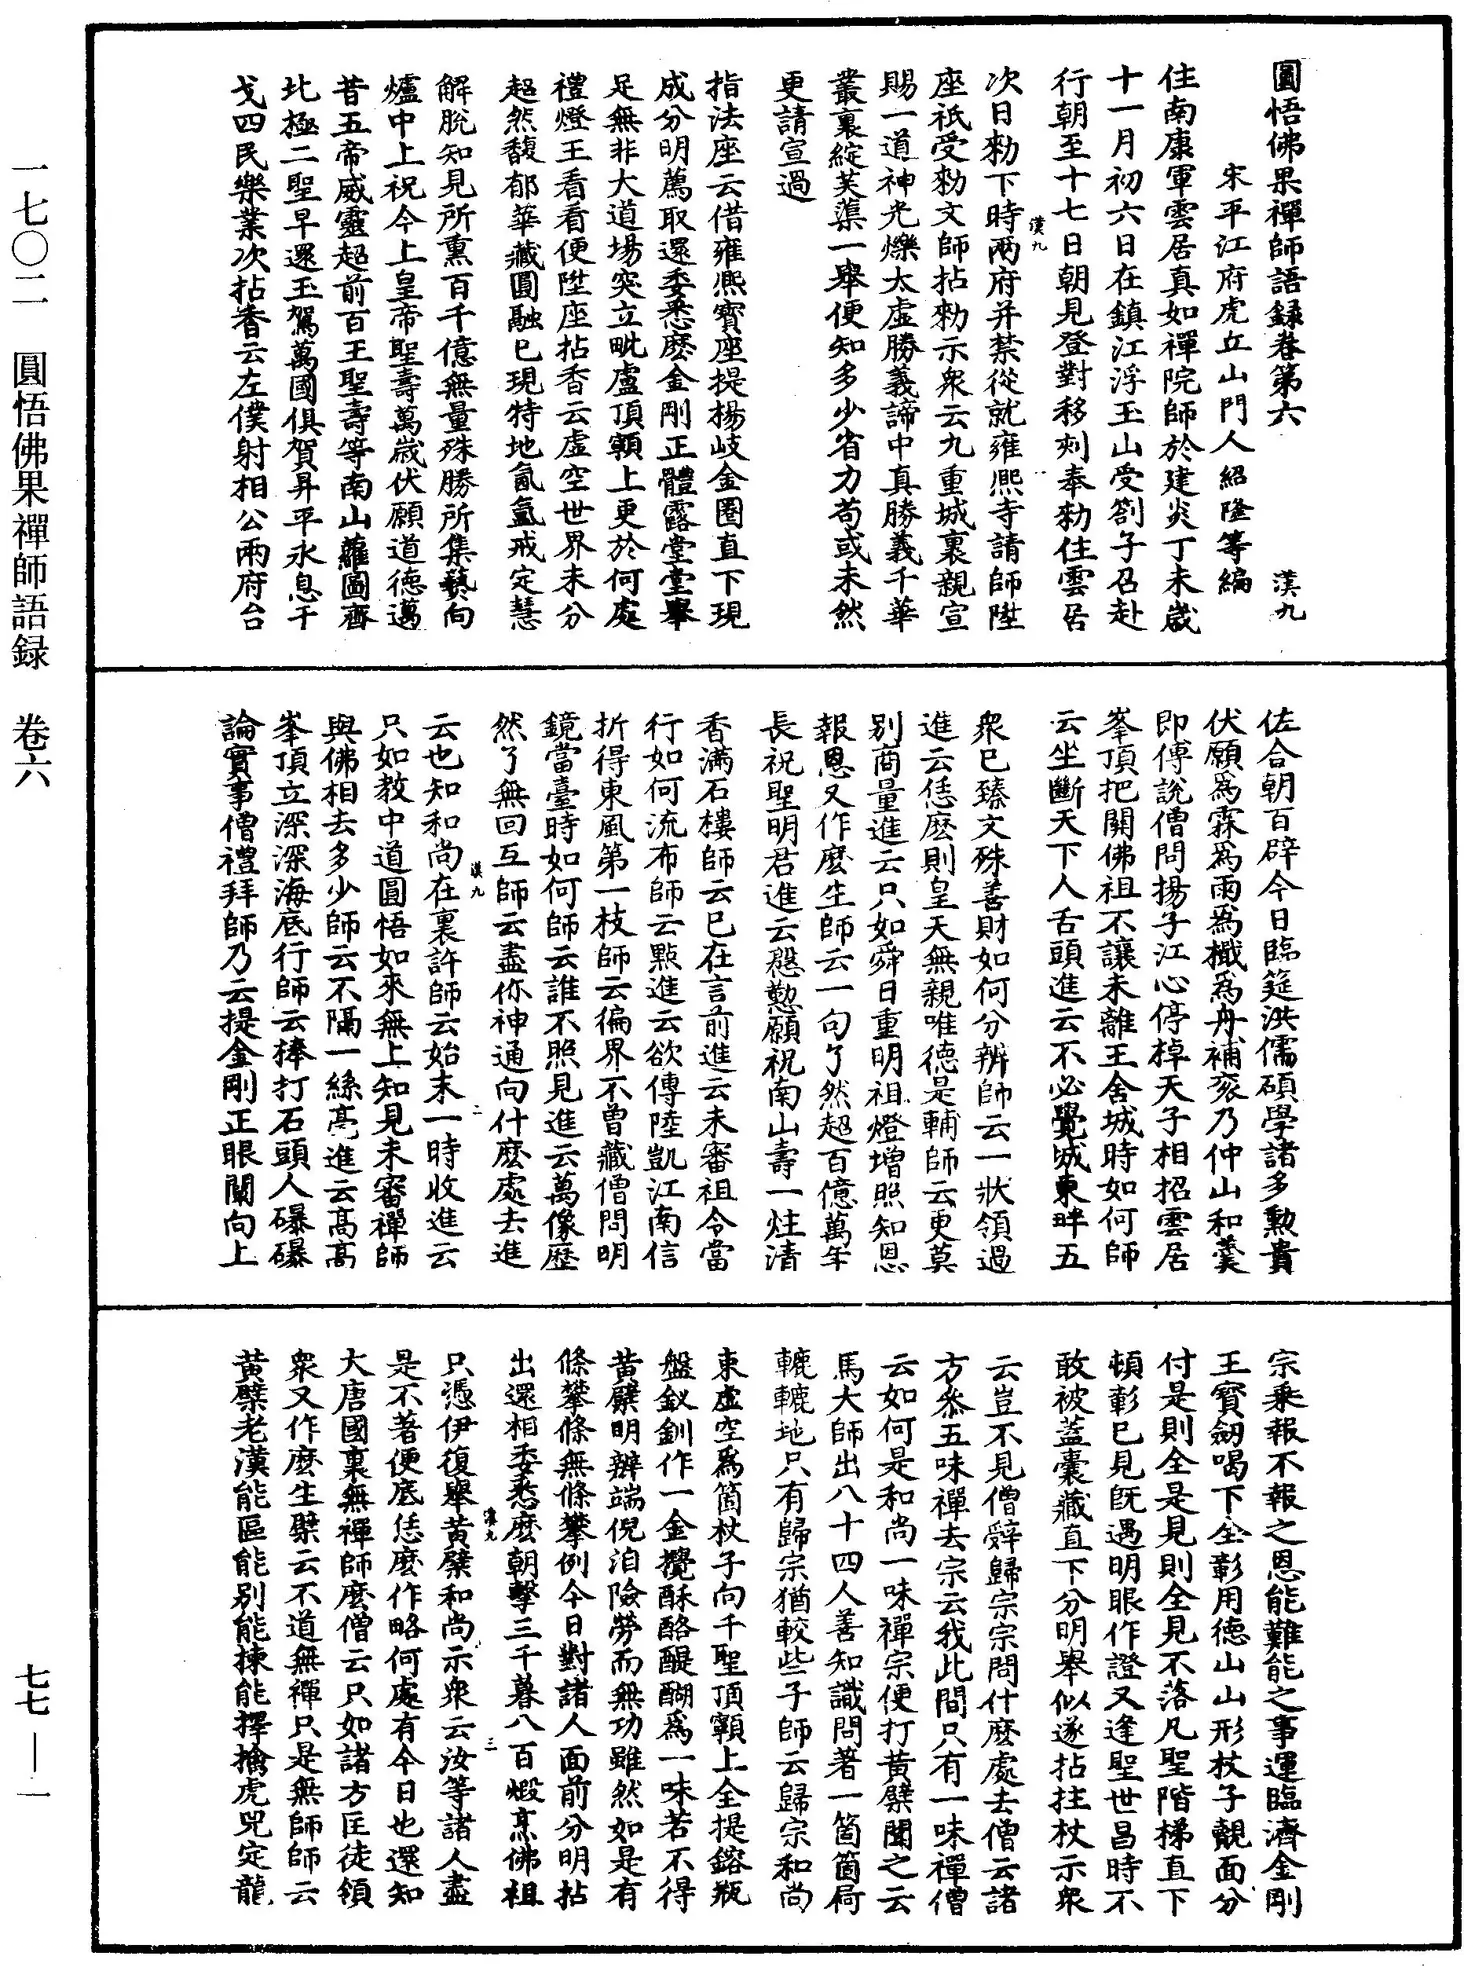 一七〇二　圓悟佛果禪師語録　卷六
七七—一
圓悟佛果禪師語録卷第六　漢九
宋平江府虎丘山門人紹隆等編
住南康軍雲居真如禪院師於建炎丁未歲
十一月初六日在鎮江浮玉山受劄子召赴
行朝至十七日朝見登對移刻奉勑住雲居
次日勑下時兩府并禁從就雍熙寺請師陞
座祇受勑文師拈勑示衆云九重城裏親宣
賜一道神光爍太虛勝義諦中真勝義千華
叢裏綻芙蕖一舉便知多少省力苟或未然
更請宣過
指法座云借雍熙寶座提楊岐金圈直下現
成分明薦取還委悉麽金剛正體露堂堂舉
足無非大道場突立毗盧頂𩕳上更於何處
禮燈王看看便陞座拈香云虛空世界未分
超然馥郁華藏圓融已現特地氤氳戒定慧
解脫知見所熏百千億無量殊勝所集爇向
爐中上祝今上皇帝聖壽萬歲伏願道德邁
昔五帝威靈超前百王聖壽等南山蘿圖齊
北極二聖早還玉駕萬國俱賀昇平永息干
戈四民樂業次拈香云左僕射相公兩府台
漢九
一
佐合朝百辟今日臨筵洪儒碩學諸多勲貴
伏願爲霖爲雨爲檝爲舟補衮乃仲山和羹
即傅說僧問揚子江心停棹天子相招雲居
峯頂把關佛祖不讓未離王舍城時如何師
云坐斷天下人舌頭進云不必覺城東畔五
衆已臻文殊善財如何分辨師云一狀領過
進云恁麽則皇天無親唯德是輔師云更莫
别商量進云只如舜日重明祖燈增照知恩
報恩又作麽生師云一句了然超百億萬年
長祝聖明君進云慇懃願祝南山壽一炷清
香滿石樓師云已在言前進云未審祖令當
行如何流布師云點進云欲傳陸凱江南信
折得東風第一枝師云徧界不曾藏僧問明
鏡當臺時如何師云誰不照見進云萬像歷
然了無回互師云盡你神通向什麽處去進
云也知和尚在裏許師云始末一時收進云
只如教中道圓悟如來無上知見未審禪師
與佛相去多少師云不隔一絲毫進云高高
峯頂立深深海底行師云棒打石頭人曝曝
論實事僧禮拜師乃云提金剛正眼闡向上
漢九
二
宗乘報不報之恩能難能之事運臨濟金剛
王寶劒喝下全彰用德山山形杖子覿面分
付是則全是見則全見不落凡聖階梯直下
頓彰已見既遇明眼作證又逢聖世昌時不
敢被蓋囊藏直下分明舉似遂拈拄杖示衆
云豈不見僧辭歸宗宗問什麽處去僧云諸
方叅五味禪去宗云我此間只有一味禪僧
云如何是和尚一味禪宗便打黄檗聞之云
馬大師出八十四人善知識問著一箇箇屙
轆轆地只有歸宗猶較些子師云歸宗和尚
東虛空爲箇杖子向千聖頂𩕳上全提鎔瓶
盤釵釧作一金攪酥酪醍醐爲一味若不得
黄檗明辨端倪洎險勞而無功雖然如是有
條攀條無條攀例今日對諸人面前分明拈
出還相委悉麽朝擊三千暮八百煅烹佛祖
只憑伊復舉黄檗和尚示衆云汝等諸人盡
是不著便底恁麽作略何處有今日也還知
大唐國裏無禪師麽僧云只如諸方匡徒領
衆又作麽生檗云不道無禪只是無師師云
黄檗老漢能區能别能揀能擇擒虎兕定龍
漢九
三